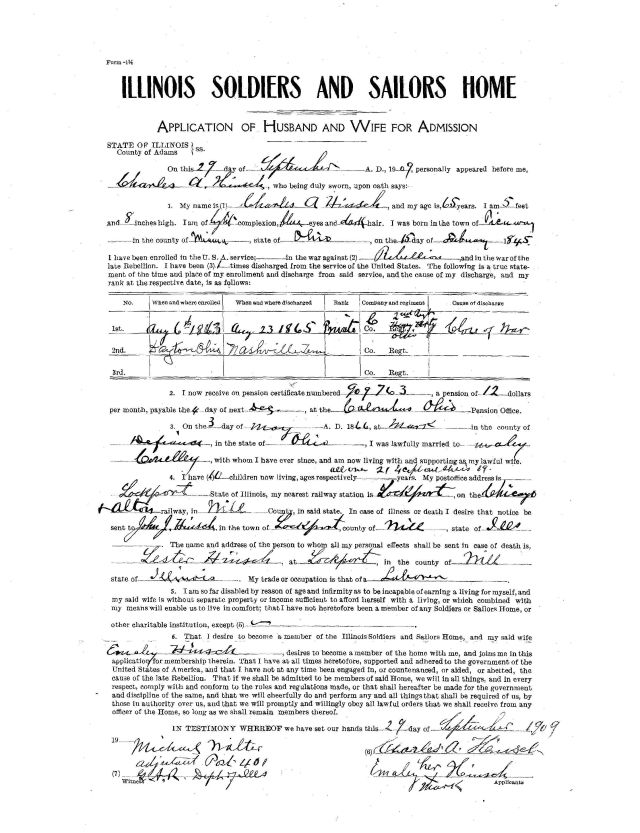 Form-1½
ILLINOIS SOLDIERS AND SAILORS HOME
APPLICATION OF HUSBAND AND WIFE FOR ADMISSION
STATE OF ILLINOIS } ss.
County of Adams
On this 29 day of September A. D., 1909, personally appeared before me,
Charles A. Hinsch, who being duly sworn, upon oath says:
1. My name is (1) Charles A Hinsch, and my age is, 65 years. I am 5 feet
and 8 inches high. I am of light complexion, blue eyes and dark hair. I was born in the town of
in the county of Miami, state of Ohio, on the 15 day of February 1845
I have been enrolled in the U. S. A. service; in the war against (2) Rebellion and in the war of the
late Rebellion. I have been (3) 1 times discharged from the service of the United States. The following is a true state-
ment of the time and place of my enrollment and discharge from said service, and the cause of my discharge, and my
rank at the respective date, is as follows:
No. When and where enrolled When and where discharged Rank Company and regiment Cause of discharge
1st. Aug 6th 1863 Aug 23 1865 Private Co. C 2nd Regt. Hvy Arty Ohio Close of War
2nd. Dayton Ohio Nashville Tenn Co. Regt.
3rd. Co. Regt.
2. I now receive on pension certificate numbered 909763, a pension of 12 dollars
per month, payable the 4 day of next Dec, at the Columbus Ohio Pension Office.
3. On the 3 day of May A. D. 1866, at Mark in the county of
Defiance, in the state of Ohio, I was lawfully married to Emaley
with whom I have ever since, and am now living with and supporting as my lawful wife.
all over 21 except one she is 19
4. I have (4) children now living, ages respectively years. My postoffice address is
Lockport State of Illinois, my nearest railway station is Lockport, on the Chicago
+ Alton railway, in Will County, in said state. In case of illness or death I desire that notice be
sent to John J. Hinsch, in the town of Lockport, county of Will, state of Ills
The name and address of the person to whom all my personal effects shall be sent in case of death is,
Lester Hinsch, at Lockport, in the county of Will
state of Illinois. My trade or occupation is that of a Laborer
5. I am so far disabled by reason of age and infirmity as to be incapable of earning a living for myself, and
my said wife is without separate property or income sufficient to afford herself with a living, or which combined with
my means will enable us to live in comfort; that I have not heretofore been a member of any Soldiers or Sailors Home, or
other charitable institution, except (5)
6. That I desire to become a member of the Illinois Soldiers and Sailors Home, and my said wife
Emaley Hinsch, desires to become a member of the home with me, and joins me in this
application for membership therein. That I have at all times heretofore, supported and adhered to the government of the
United States of America, and that I have not at any time been engaged in, or countenanced, or aided, or abetted, the
cause of the late Rebellion. That if we shall be admitted to be members of said Home, we will in all things, and in every
respect, comply with and conform to the rules and regulations made, or that shall hereafter be made for the government
and discipline of the same, and that we will cheerfully do and perform any and all things that shall be required of us, by
those in authority over us, and that we will promptly and willingly obey all lawful orders that we shall receive from any
officer of the Home, so long as we shall remain members thereof.
IN TESTIMONY WHEREOF we have set our hands this 29 day of September 1909
19
Michael Walter
adjutant Post 401
(7) G.A.R. Dept of Ills
Witness
(6) Charles A. Hinsch
Emaley her Hinsch
mark
Applicants